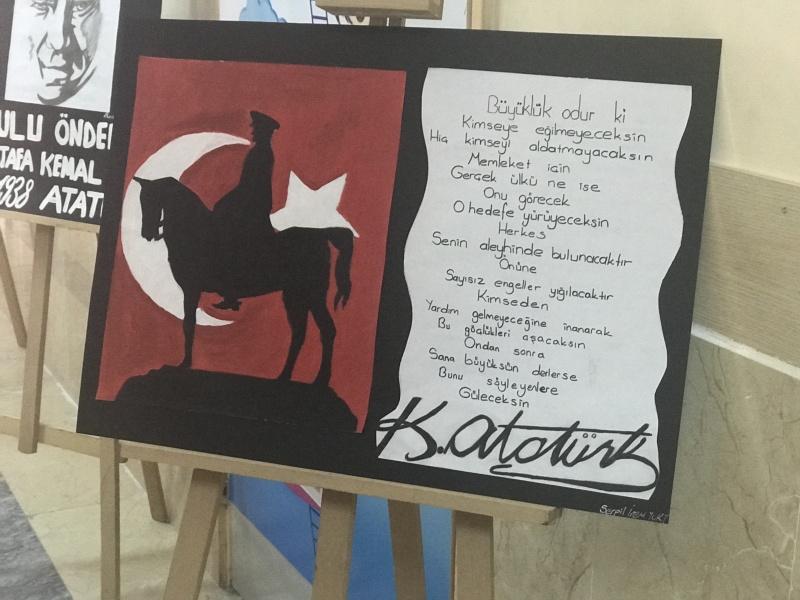 ULU ÖNDE
TAFA KEMAL
1938 ATAT
Büyüklük odur ki
Kimseye eğilmeyeceksin
Hiç kimseyi aldatmayacaksın
Memleket için
Gerçek ülkü ne ise
Onu görecek
O hedefe yürüyeceksin
Herkes
Senin aleyhinde bulunacaktır
Önüne
Sayısız engeller yığılacaktır
Kimseden
Yardım gelmeyeceğine inanarak
Bu güçlükleri aşacaksın
Ondan sonra
Sana büyüksün derlerse
Bunu söyleyenlere
Güleceksin
K. Atatürk
Serpil İrem YURT